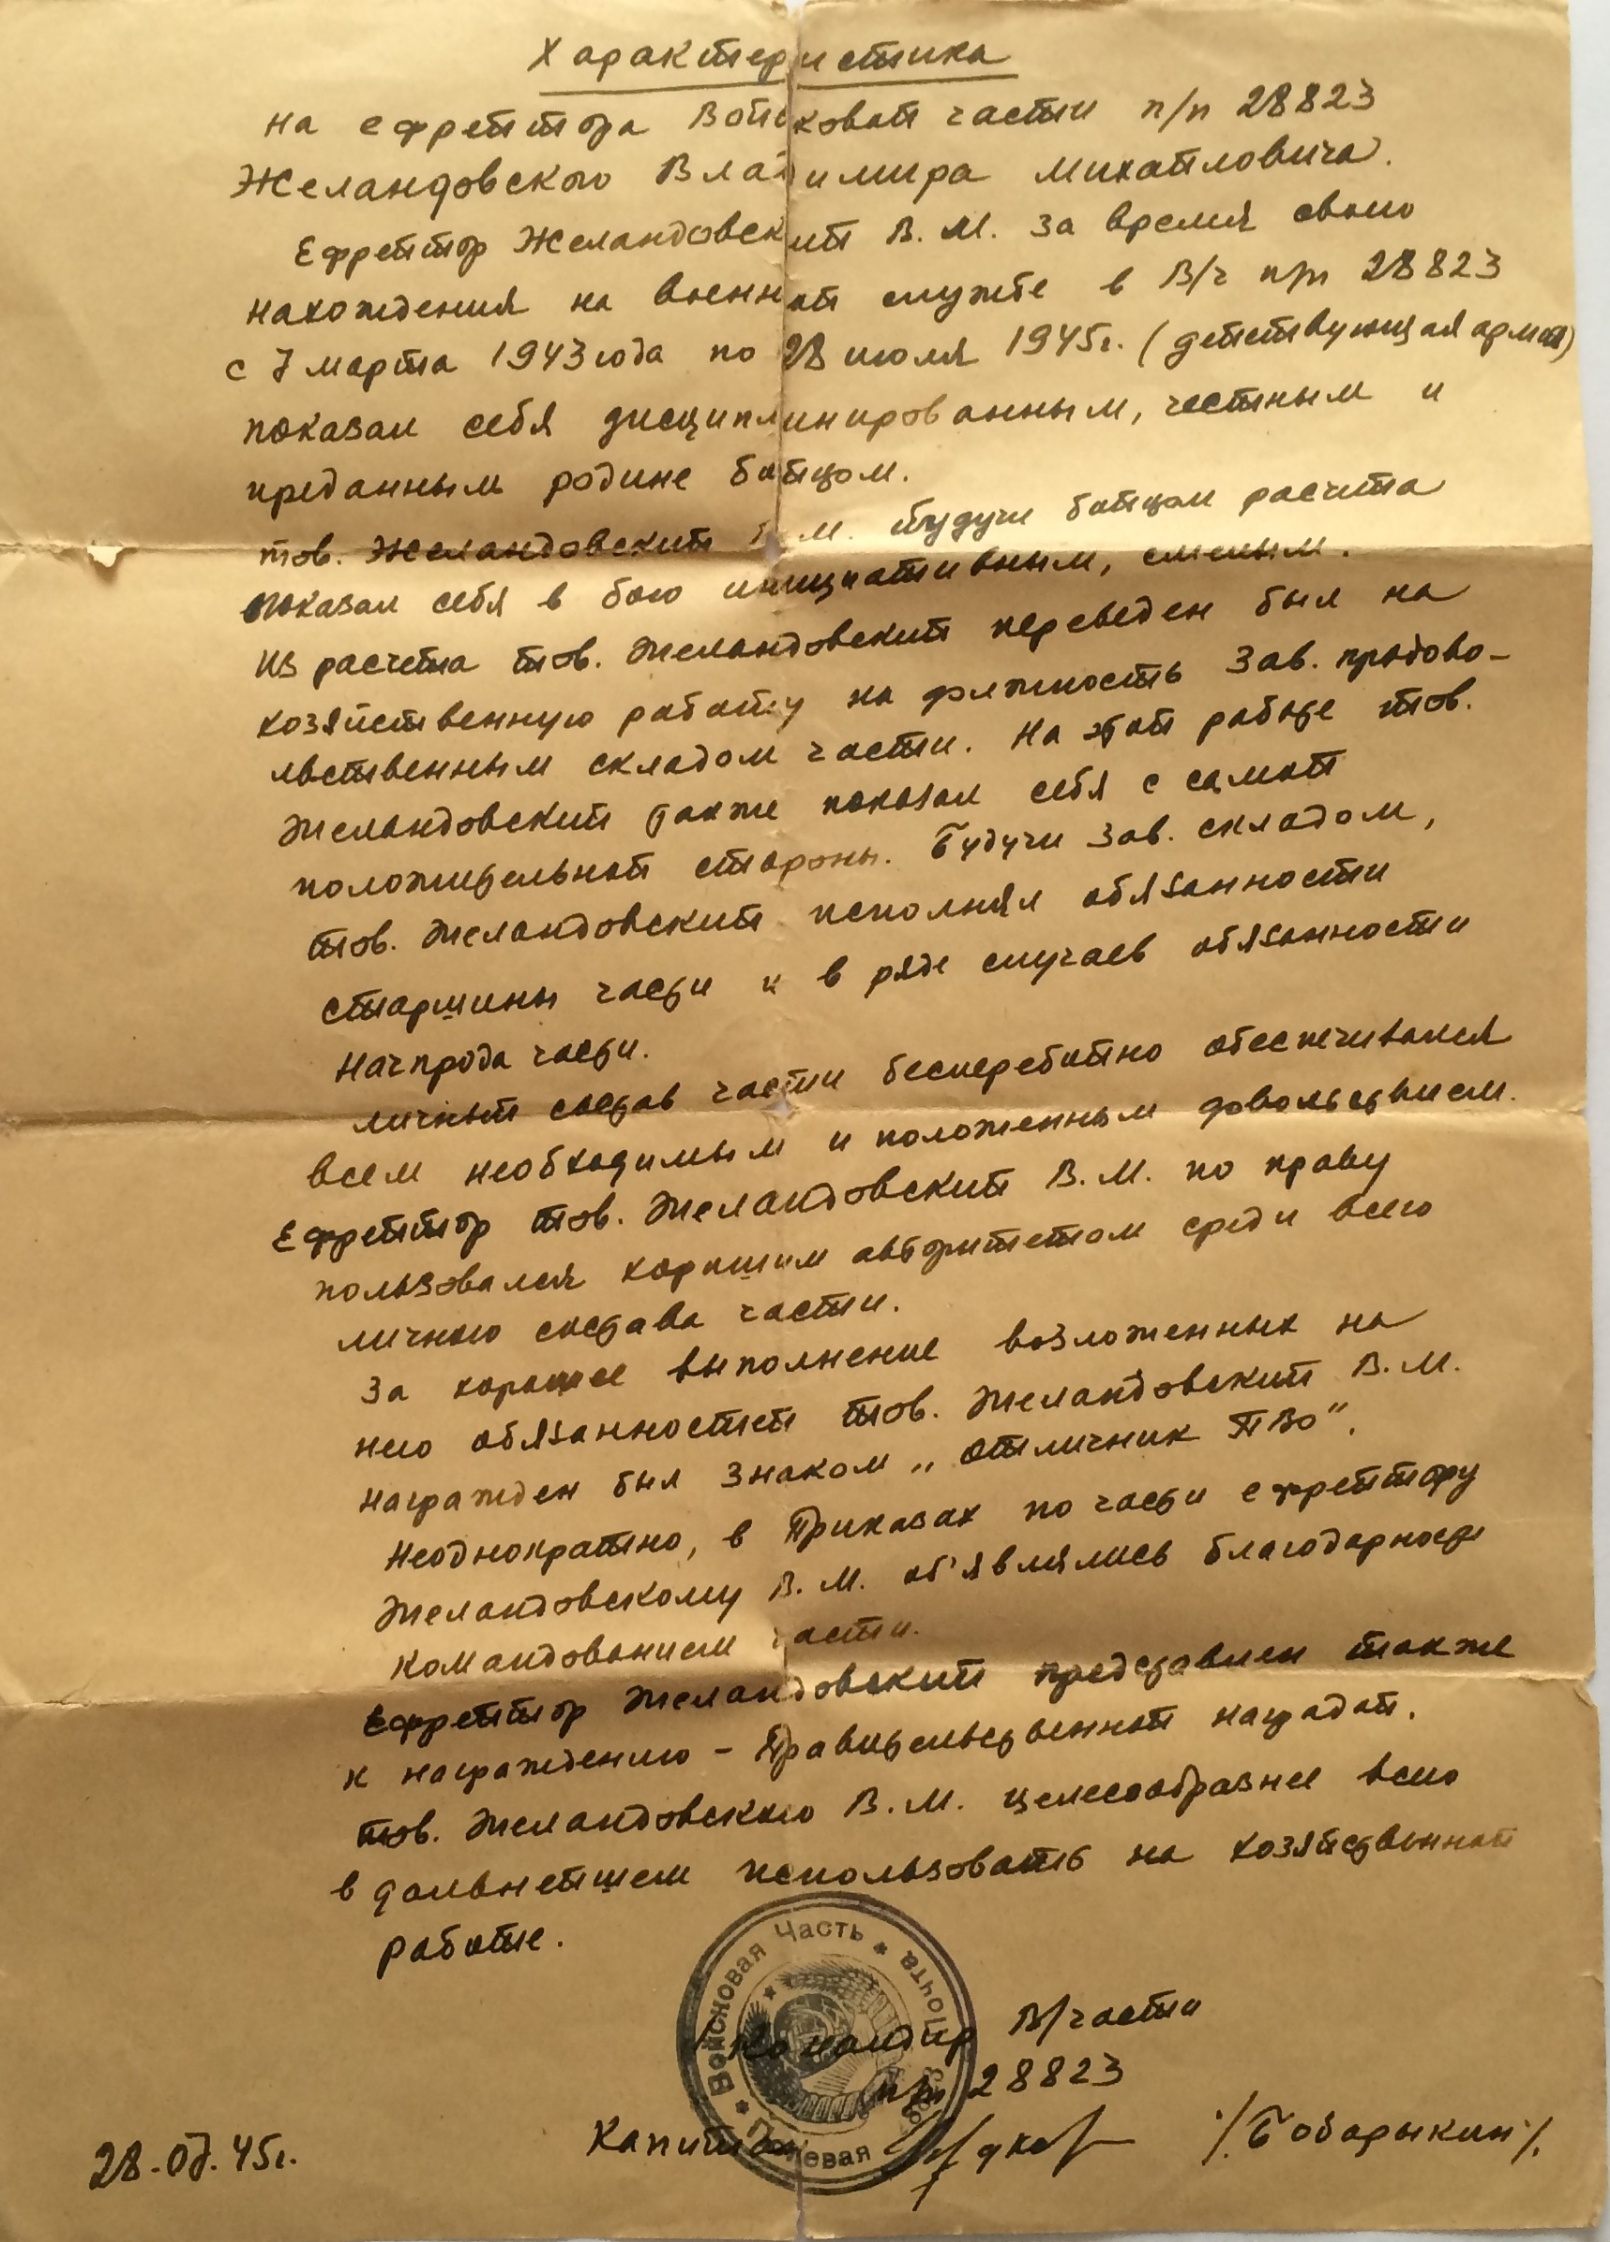 Характеристика
на ефрейтора Войсковой части п/п 28823
Желандовского Владимира Михайловича.
Ефрейтор Желандовский В. М. за время своего
нахождения на военной службе в В/ч п/п 28823
с 7 марта 1943 года по 28 июля 1945г. (действующая армия)
показал себя дисциплинированным, честным и
преданным родине бойцом.
тов. Желандовский В. М. будучи бойцом расчета
показал себя в бою инициативным, смелым.
Из расчета тов. Желандовский переведен был на
хозяйственную работу на должность Зав. продово-
льственным складом части. На этой работе тов.
Желандовский также показал себя с самой
положительной стороны. Будучи Зав. складом,
тов. Желандовский исполнял обязанности
старшины части и в ряде случаев обязанности
Начпрода части.
Личный состав части бесперебойно обеспечивался
всем необходимым и положенным довольствием.
Ефрейтор тов. Желандовский В. М. по праву
пользовался хорошим авторитетом среди всего
личного состава части.
За хорошее выполнение возложенных на
него обязанностей тов. Желандовский В. М.
награжден был знаком „отличник ПВО".
Неоднократно, в Приказах по части ефрейтору
Желандовскому В. М. об'являлись благодарности
командованием части.
Ефрейтор Желандовский представлен также
к награждению – Правительственной наградой.
тов. Желандовского В. М. целесообразнее всего
в дальнейшем использовать на хозяйственной
работе.
Войсковая Часть * Полевая Почта
Командир В/части
п/п 28823
Капитан /Бобарыкин/.
28.07.45г.